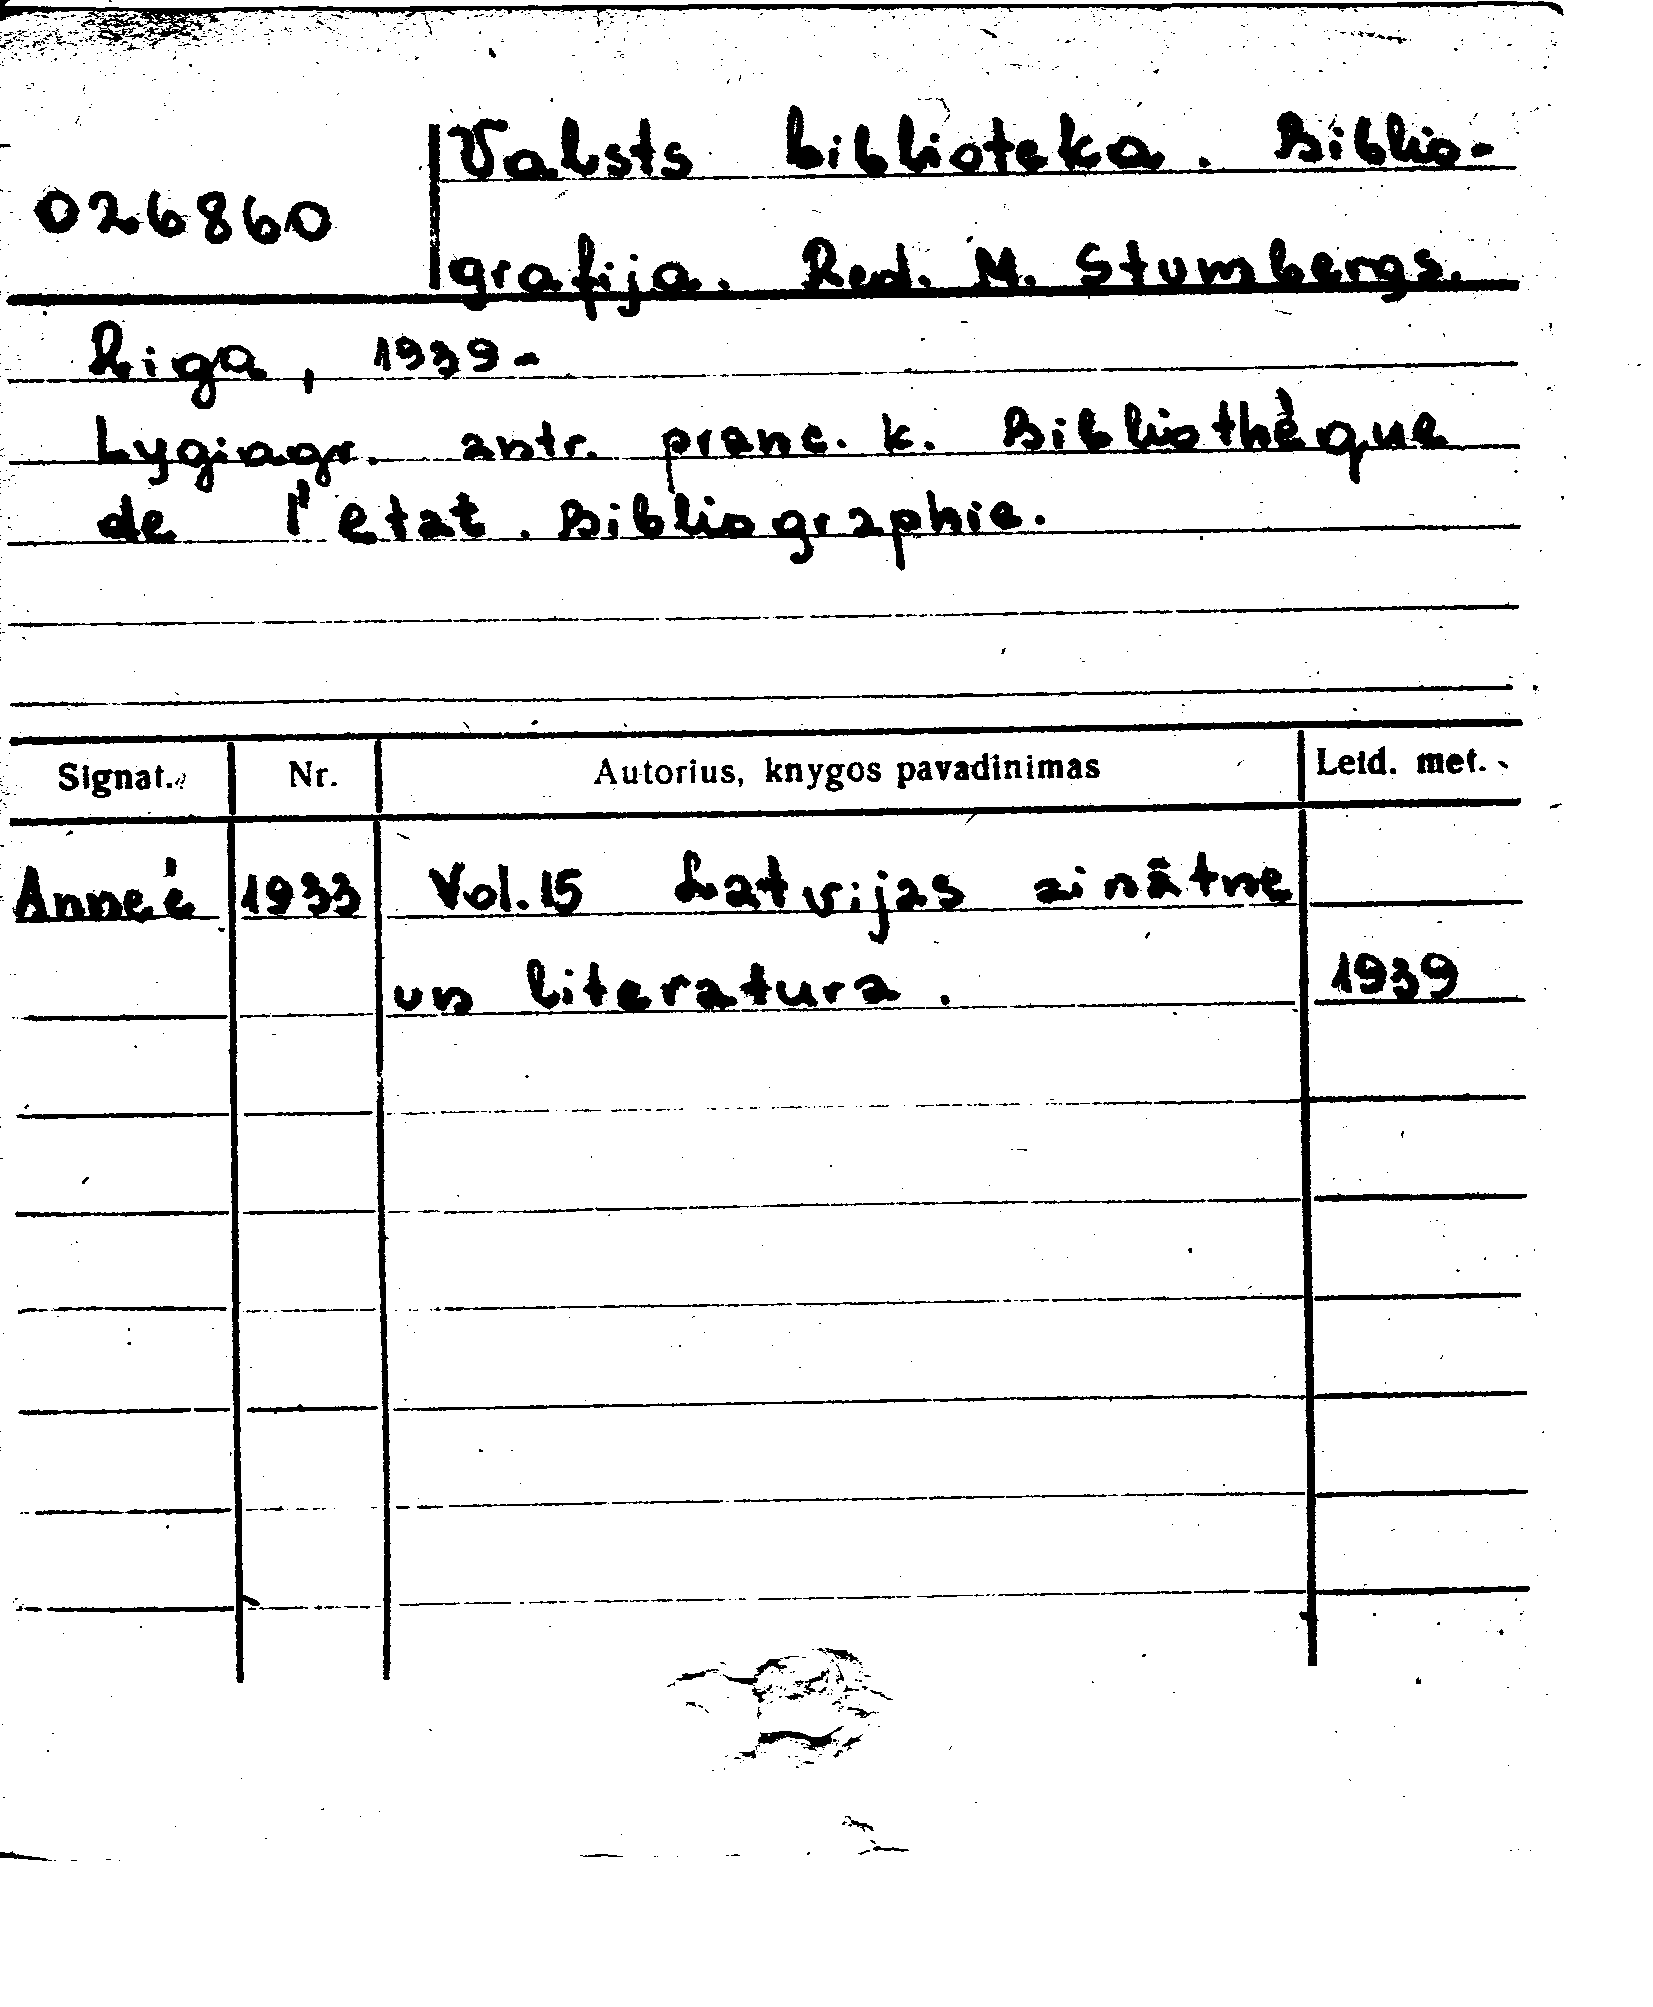 Valsts biblioteka. Biblio-
026860
grafija. Red. M. Stumbergs.
Riga, 1939-
Lygiagr. antr. pranc. k. Bibliothèque
de l'etat. Bibliographie.
Signat. Nr. Autorius, knygos pavadinimas Leid. met.
Anneé 1933 Vol. 15 Latvijas zinātne
un literatura. 1939